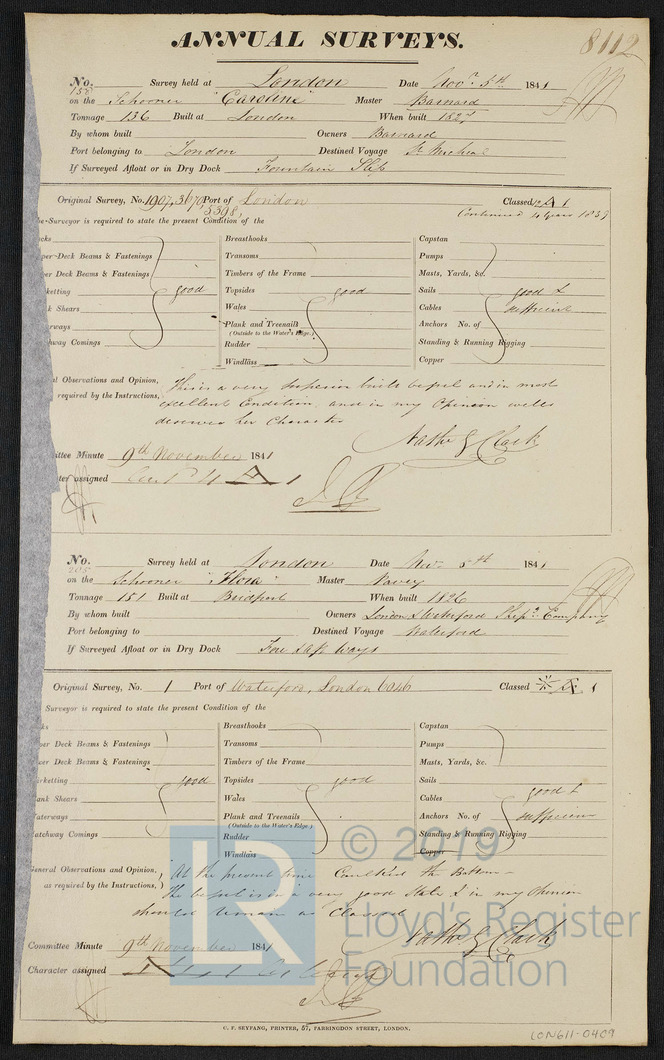 ANNUAL SURVEYS.
8112
No. 158 Survey held at London Date Novr. 5th 1841
on the Schooner "Caroline" Master Barnard
Tonnage 136 Built at London When built 1827
By whom built Owners Barnard
Port belonging to London Destined Voyage St Micheal
If Surveyed Afloat or in Dry Dock Fountain Slip
Original Survey, No. 1907, 3670, 5398, Port of London Classed A 1
Continued 4 years 1839
Surveyor is required to state the present Condition of the
Breasthooks Capstan
per-Deck Beams & Fastenings Transoms Pumps
er Deck Beams & Fastenings Timbers of the Frame Masts, Yards, &c.
rketting good Topsides good Sails good &
k Shears Wales Cables sufficient
rways Plank and Treenails Anchors No. of
(Outside to the Water's Edge.)
hway Comings Rudder Standing & Running Rigging
Windlass Copper
l Observations and Opinion, This is a very superior built vessel and in most
required by the Instructions, excellent Condition and in my Opinion well
deserves her Character
Nathl G Clark
ttee Minute 9th November 1841
ter assigned A 1
No. Survey held at London Date Nov. 5th 1841
on the Schooner "Flora" Master Pavey
Tonnage 151 Built at Bridport When built 1826
By whom built Owners London & Waterford Ship. Company
Port belonging to Destined Voyage Waterford
If Surveyed Afloat or in Dry Dock Ways
Original Survey, No. 1 Port of Waterford, London 6046 Classed 1
Surveyor is required to state the present Condition of the
ks Breasthooks Capstan
per Deck Beams & Fastenings Transoms Pumps
wer Deck Beams & Fastenings Timbers of the Frame Masts, Yards, &c.
irketting good Topsides good Sails
ank Shears Wales Cables good &
aterways Plank and Treenails Anchors No. of sufficient
(Outside to the Water's Edge.)
atchway Comings Rudder Standing & Running Rigging
Windlass Copper
General Observations and Opinion, At the present time Caulked the Bottom
as required by the Instructions, The vessel is in a very good State & in my Opinion
should remain as Classed
Nathl G Clark
Committee Minute 9th November 1841
Character assigned
C. F. SEYFANG, PRINTER, 57, FARRINGDON STREET, LONDON.
LON611-0409
LR © 2019
Lloyd's Register
Foundation